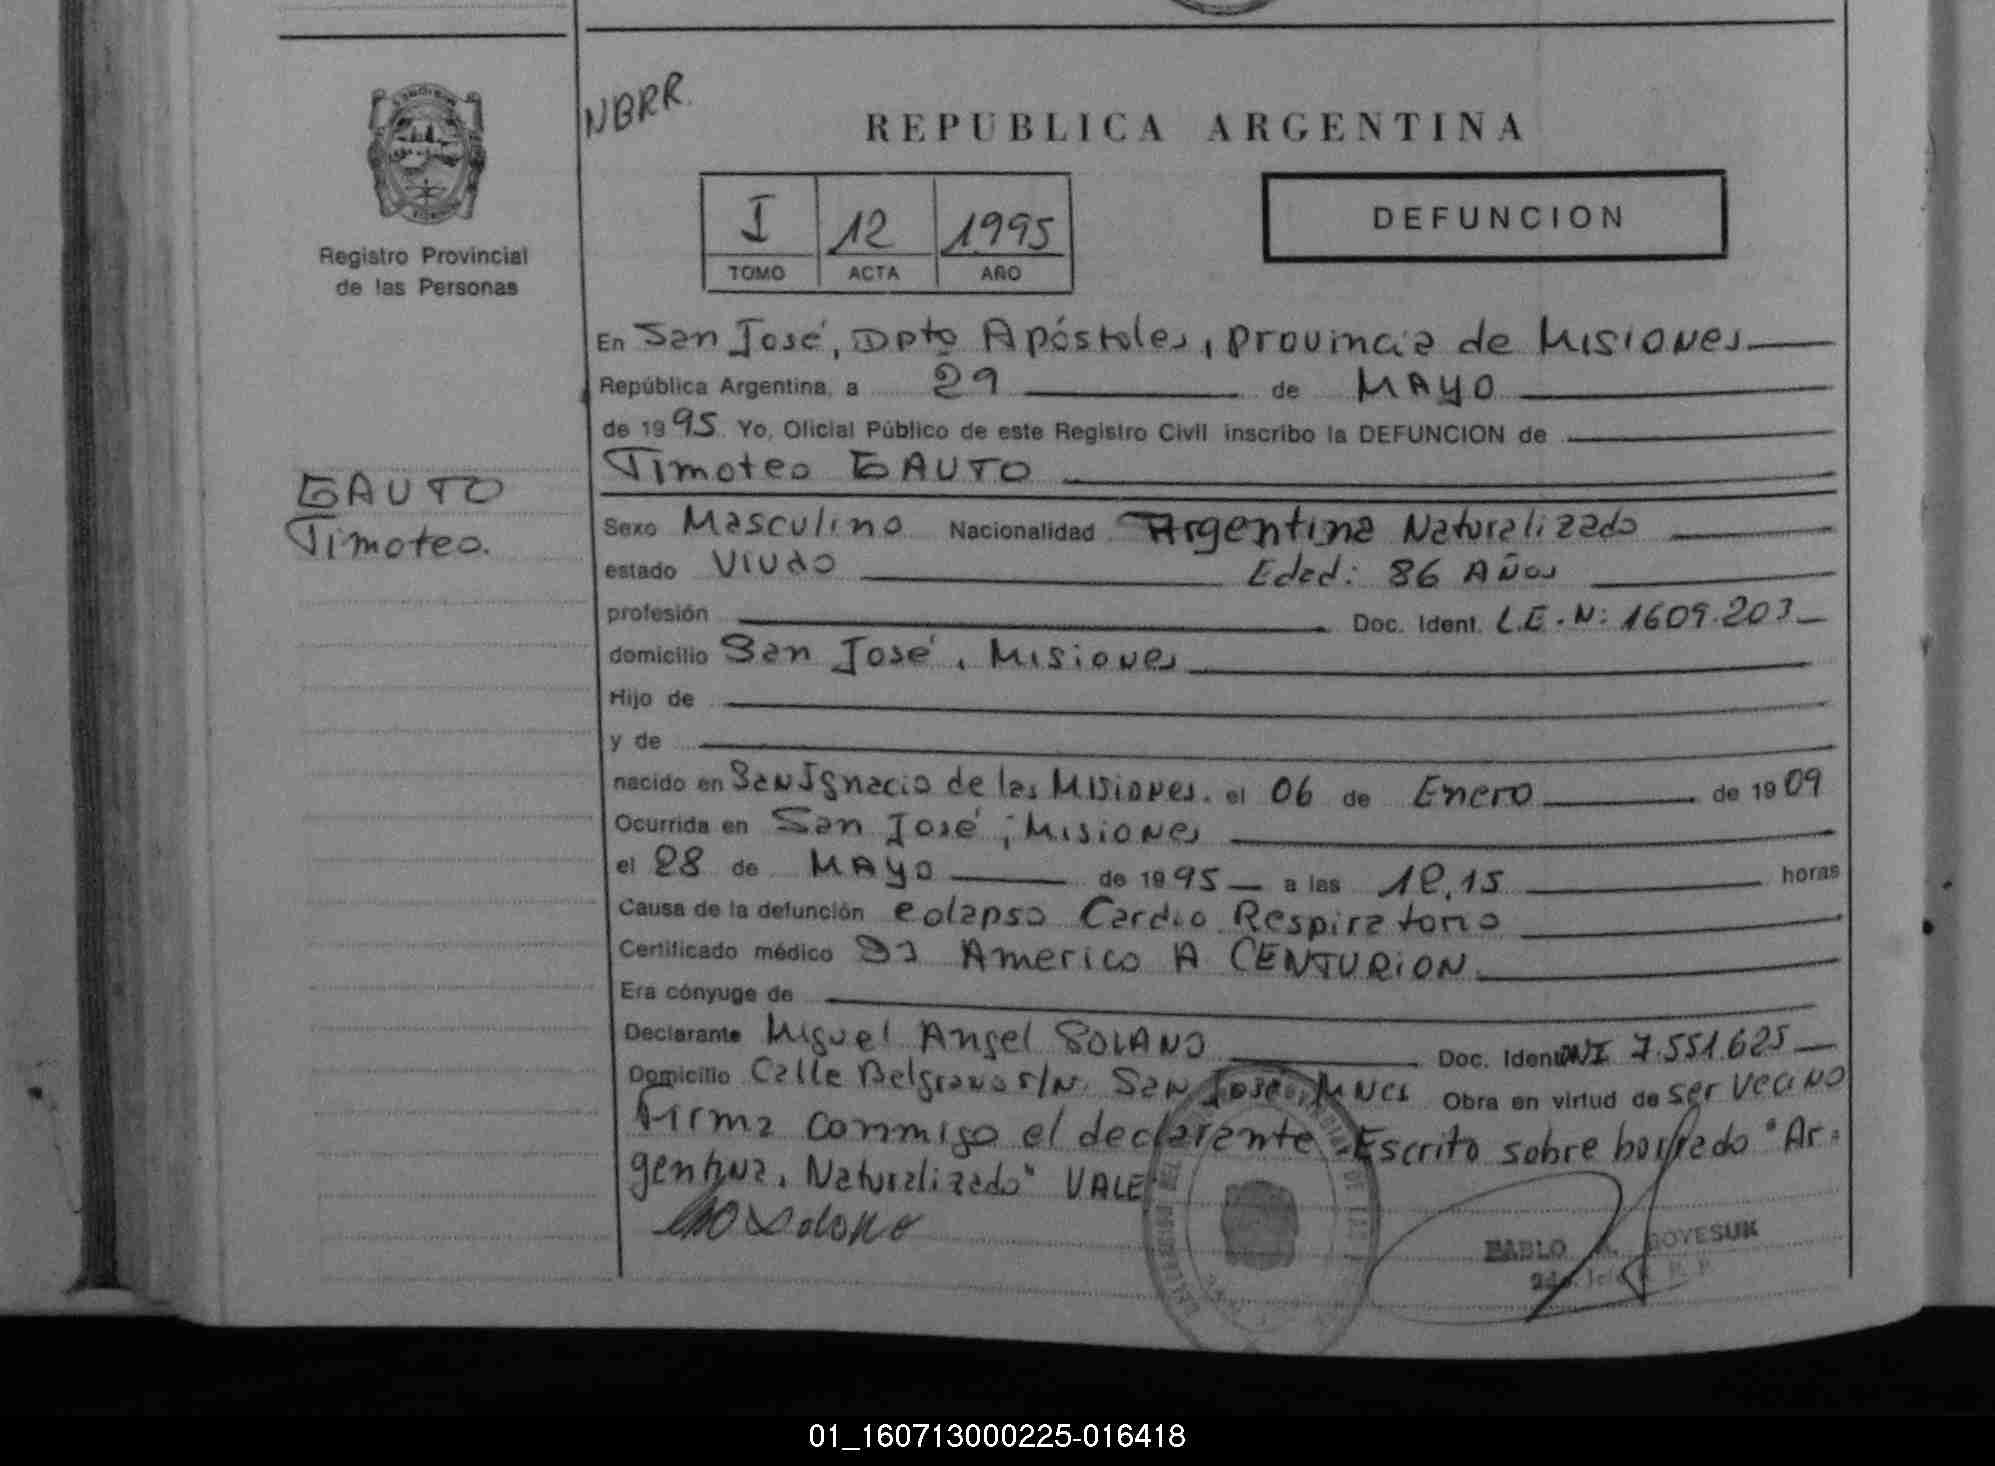 NBRR.
REPUBLICA ARGENTINA
I 12 1995
TOMO ACTA AÑO
DEFUNCION
Registro Provincial
de las Personas
GAUTO
Timoteo.
En San José, Dpto Apóstoles, Provincia de Misiones
República Argentina, a 29 de MAYO
de 1995 Yo, Oficial Público de este Registro Civil inscribo la DEFUNCION de
Timoteo GAUTO
Sexo Masculino Nacionalidad Argentina Naturalizado
estado Viudo Edad: 86 Años
profesión Doc. Ident. L.E. N: 1609.203
domicilio San José, Misiones
Hijo de
y de
nacido en San Ignacio de las Misiones. el 06 de Enero de 1909
Ocurrida en San José, Misiones
el 28 de MAYO de 1995 a las 12,15 horas
Causa de la defunción colapso Cardio Respiratorio
Certificado médico Americo A CENTURION
Era cónyuge de
Declarante Miguel Angel SOLANO Doc. Ident DNI 7.551.625
Domicilio Calle Belgrano s/N. San José, Mnes Obra en virtud de ser vecino
Firma conmigo el declarante Escrito sobre borrado "Ar=
gentina, Naturalizado" VALE
Solano
PABLO BOVESUK
01_160713000225-016418